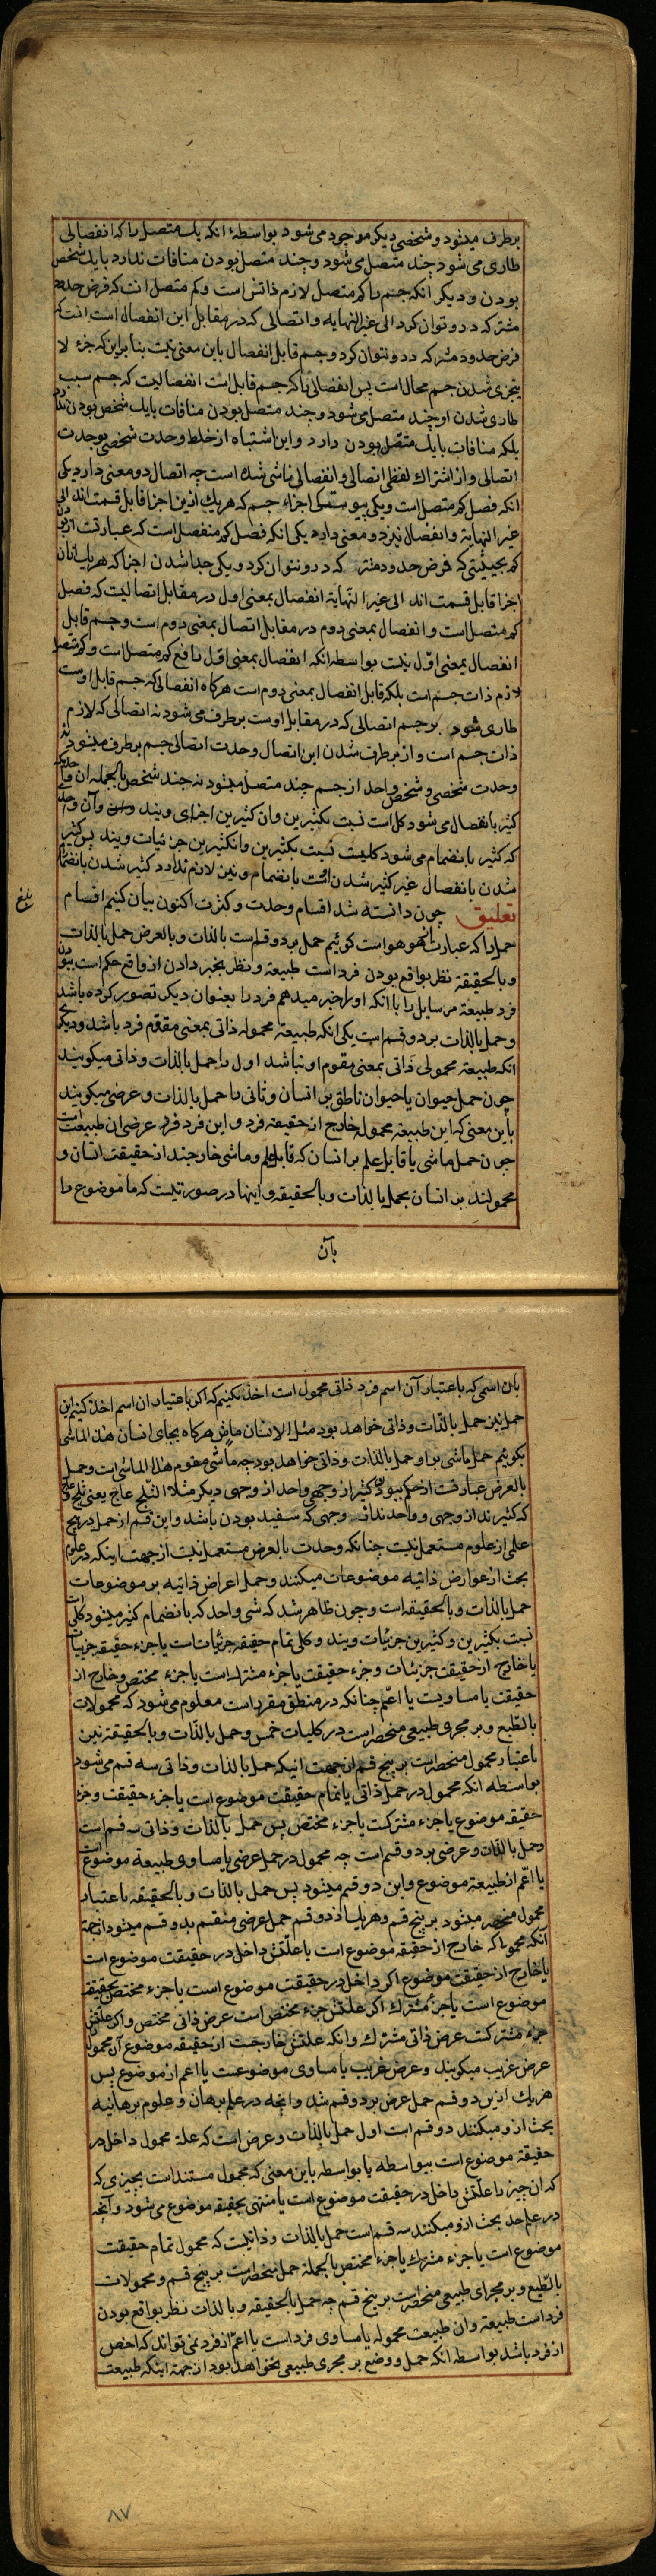 برطرف میشود و شخصی دیگر موجود می‌شود بواسطهٔ انکه یک متصل را که انفصالی
طاری می‌شود چند متصل می‌شود و چند متصل بودن منافات ندارد بایک شخص
بودن و دیگر انکه جسم را کم متصل لازم ذاتش است و کم متصل انست که فرض حدود
مشترکه درو توان کرد الی غیر النهایه و اتصالی که در مقابل این انفصال است انست که
فرض حدود مشترکه درو نتوان کرد و جسم قابل انفصال باین معنی نیست بنا براین که جزء لا
یتجزی شدن جسم محال است پس انفصالی را که جسم قابل است انفصالیست که جسم سبب
طاری شدن او چند متصل می‌شود و چند متصل بودن منافات بایک شخص بودن ندارد
بلکه منافات بایک متصل بودن دارد و این اشتباه از خلط وحدت شخصی بوحدت
اتصالی و از اشتراک لفظی اتصالی و انفصالی ناشی شده است چه اتصال دو معنی دارد یکی
انکه فصل کم متصل است و یکی پیوستگی اجزاء جسم که هر یک ازین اجزا قابل قسمت اند الی
غیر النهایة و انفصال نیز دو معنی دارد یکی انکه فصل کم منفصل است که عبارتست از بودن
کم بحیثیتی که فرض حدود مشترکه درو نتوان کرد و یکی جدا شدن اجزا که هر یک از ان
اجزا قابل قسمت اند الی غیر النهایة انفصال بمعنی اول در مقابل اتصالیست که فصل
کم متصل است و انفصال بمعنی دوم در مقابل اتصال بمعنی دوم است و جسم قابل
انفصال بمعنی اول نیست بواسطه انکه انفصال بمعنی اول نافع کم متصل است و کم متصل
لازم ذات جسم است بلکه قابل انفصال بمعنی دوم است هرگاه انفصالی که جسم قابل اوست
طاری شود بر جسم اتصالی که در مقابل اوست برطرف می‌شود نه اتصالی که لازم
ذات جسم است و از برطرف شدن این اتصال وحدت اتصالی جسم برطرف میشود نه
وحدت شخصی و شخص واحد از جسم چند متصل میشود نه چند شخص بالجمله ان واحد که
کثیر بانفصال می‌شود کل است نسبت بکثیرین وان کثیرین اجزای ویند وآن واحد
که کثیر بانضمام می‌شود کلیست نسبت بکثیرین وانکثیرین جزئیات ویند پس کثیر
شدن بانفصال غیر کثیر شدن است بانضمام و نیز لازم ندارد کثیر شدن بانضمام
تعلیق چون دانسته شد اقسام وحدت و کثرت اکنون بیان کنیم اقسام
بلغ
حمل را که عبارت از هو هو است کوئیم حمل بر دو قسم است بالذات و بالعرض حمل بالذات
و بالحقیقة نظر بواقع بودن فرد است طبیعة و نظر بخبر دادن از واقع حکم است ببودن
فرد طبیعة مر سایل را با انکه او را خبر میدهم فرد را بعنوان دیکر تصور کرده باشد
و حمل بالذات بر دو قسم است یکی انکه طبیعة محموله ذاتی بمعنی مقوّم فرد باشد و دیکر
انکه طبیعة محمولی ذاتی بمعنی مقوم او نباشد اول را حمل بالذات و ذاتی میکویند
چون حمل حیوان یا حیوان ناطق بر انسان و ثانی را حمل بالذات و عرضی میکویند
باین معنی که این طبیعة محموله خارج از حقیقة فرد و این فرد فرد عرضی ان طبیعت است
چون حمل ماشی یا قابل علم بر انسان که قابل علم و ماشی خارجند از حقیقت انسان و
محمولند بر انسان بحمل بالذات و بالحقیقه و اینها در صورتیست که ما موضوع را
بآن
بان اسمی که باعتبار آن اسم فرد ذاتی محمول است اخذ نکنیم که اکر باعتبار ان اسم اخذ کنیم این
حمل نیز حمل بالذات و ذاتی خواهد بود مثل الانسان ماش هرکاه بجای انسان هذا الماشی
بکوئیم حمل ماشی براو حمل بالذات و ذاتی خواهد بود چه ماشی مقوم هذا الماشی است و حمل
بالعرض عبارتست از حکم ببودن کثیر از وجهی واحد از وجهی دیکر مثلا الثلج عاج یعنی ثلج و عاج
که کثیرند از وجهی و واحدند از وجهی که سفید بودن باشد و این قسم از حمل در هیچ
علمی از علوم مستعمل نیست چنانکه وحدت بالعرض مستعمل نیست از جهت اینکه در علوم
بحث از عوارض ذاتیه موضوعات میکنند و حمل اعراض ذاتیه بر موضوعات
حمل بالذات و بالحقیقه است و چون ظاهر شد که شی واحد که بانضمام کثیر میشود کلی است
نسبت بکثیرین و کثیرین جزئیات ویند و کلی تمام حقیقة جزئیات است یا جزء حقیقة جزئیات
یا خارج از حقیقت جزئیات و جزء حقیقت یا جزء مشترک است یا جزء مختص و خارج از
حقیقت یا مساویست یا اعم چنانکه در منطق مقرر است معلوم می‌شود که محمولات
بالطبع و بر مجری طبیعی منحصر است در کلیات خمس و حمل بالذات و بالحقیقة نیز
باعتبار محمول منحصر است بر پنج قسم از جهت انیکه حمل بالذات و ذاتی سه قسم می‌شود
بواسطه انکه محمول در حمل ذاتی یا تمام حقیقت موضوع است یا جزء حقیقت و جزء
حقیقه موضوع یا جزء مشترکست یا جزء مختص پس حمل بالذات و ذاتی سه قسم است
و حمل بالذات و عرضی بر دو قسم است چه محمول در حمل عرضی یا مساوی طبیعة موضوع است
یا اعم از طبیعة موضوع و این دو قسم میشود پس حمل بالذات و بالحقیقه باعتبار
محمول منحصر میشود بر پنج قسم و هر یک از دو قسم حمل عرضی منقسم بدو قسم میشود از جهة
آنکه محمولی که خارج از حقیقة موضوع است یا علّتش داخل در حقیقت موضوع است
یا خارج از حقیقت موضوع اکر داخل در حقیقت موضوع است یا جزء مختص حقیقة
موضوع است یا جزء مشترک اکر علتش جزء مختص است عرض ذاتی مختص و اکر علتش
جزء مشترکست عرض ذاتی مشترک و انکه علتش خارجست از حقیقه موضوع آن محمول را
عرض غریب میکویند و عرض غریب یا مساوی موضوعست یا اعم از موضوع پس
هر یک ازین دو قسم حمل عرض بر دو قسم شد و انچه در علم برهان و علوم برهانیه
بحث ازو میکنند دو قسم است اول حمل بالذات و عرض است که علة محمول داخل در
حقیقة موضوع است بیواسطه یا بواسطه باین معنی که محمول مستند است بچیزی که
که ان چیز را علّتش داخل در حقیقت موضوع است یا منتهی بحقیقه موضوع می‌شود و آنچه
در علم حد بحث ازو میکنند سه قسم است حمل بالذات و ذاتیست که محمول تمام حقیقت
موضوع است یا جزء مشترک یا جزء مختص بالجملة حمل منحصر است بر پنج قسم و محمولات
بالطبع و بر مجرای طبیعی منحصر است بر پنج قسم چه حمل بالحقیقه و بالذات نظر بواقع بودن
فرد است طبیعة وان طبیعت محموله یا مساوی فرد است یا اعم از فرد نمی تواند که اخص
از فرد باشد بواسطه انکه حمل و وضع بر مجری طبیعی نخواهد بود از جهة اینکه طبیعت
۸۷